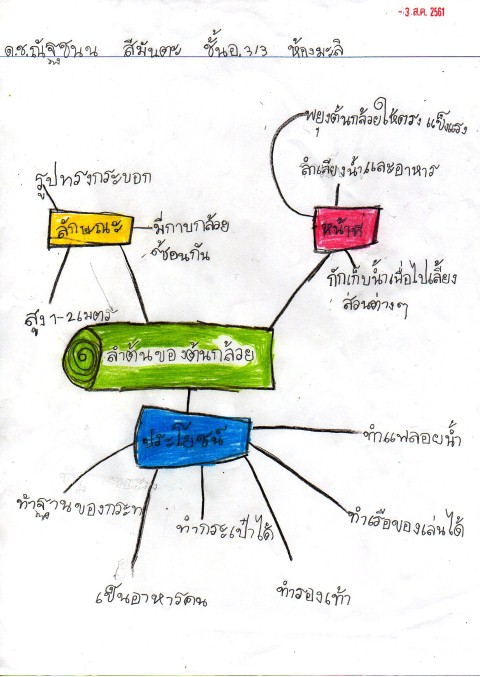 - 3 ส.ค. 2561
ด.ช.ณัฐชนน สีมันตะ ชั้นอ.3/3 ห้องมะลิ
พยุงต้นกล้วยให้ตรง แข็งแรง
ลำเลียงน้ำและอาหาร
รูปทรงกระบอก
ลักษณะ
มีกาบกล้วย
ซ้อนกัน
หน้าที่
กักเก็บน้ำเพื่อไปเลี้ยง
ส่วนต่างๆ
สูง 1-2 เมตร
ลำต้นของต้นกล้วย
ประโยชน์
ทำแพลอยน้ำ
ทำฐานของกระทง
ทำกระเป๋าได้
ทำเรือของเล่นได้
เป็นอาหารคน
ทำรองเท้า